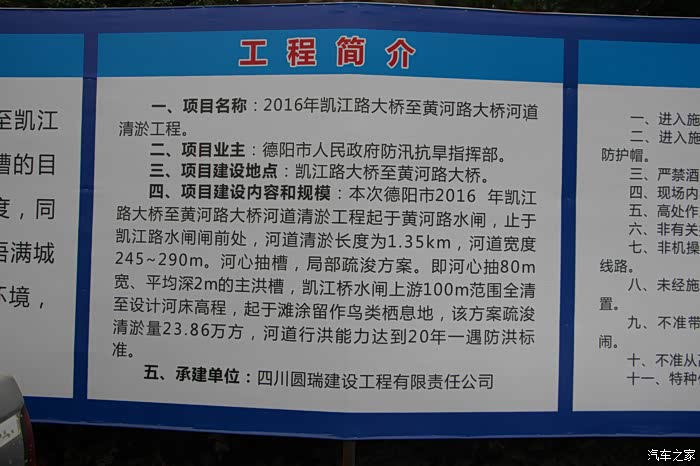 工程简介
一、项目名称：2016年凯江路大桥至黄河路大桥河道
清淤工程。
二、项目业主：德阳市人民政府防汛抗旱指挥部。
三、项目建设地点：凯江路大桥至黄河路大桥。
四、项目建设内容和规模：本次德阳市2016 年凯江
路大桥至黄河路大桥河道清淤工程起于黄河路水闸，止于
凯江路水闸闸前处，河道清淤长度为1.35km，河道宽度
245~290m。河心抽槽，局部疏浚方案。即河心抽80m
宽、平均深2m的主洪槽，凯江桥水闸上游100m范围全清
至设计河床高程，起于滩涂留作鸟类栖息地，该方案疏浚
清淤量23.86万方，河道行洪能力达到20年一遇防洪标
准。
五、承建单位：四川圆瑞建设工程有限责任公司
至凯江
槽的目
度，同
吾满城
环境，
一、进入施
二、进入施
防护帽。
三、严禁酒
四、现场内
五、高处作
六、非有关
七、非机操
线路。
八、未经施
置。
九、不准带
闹。
十、不准从高
十一、特种作
汽车之家